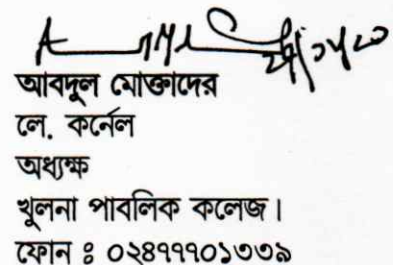 আবদুল মোক্তাদের
লে. কর্নেল
অধ্যক্ষ
খুলনা পাবলিক কলেজ।
ফোন ঃ ০২৪৭৭৭০১৩৩৯